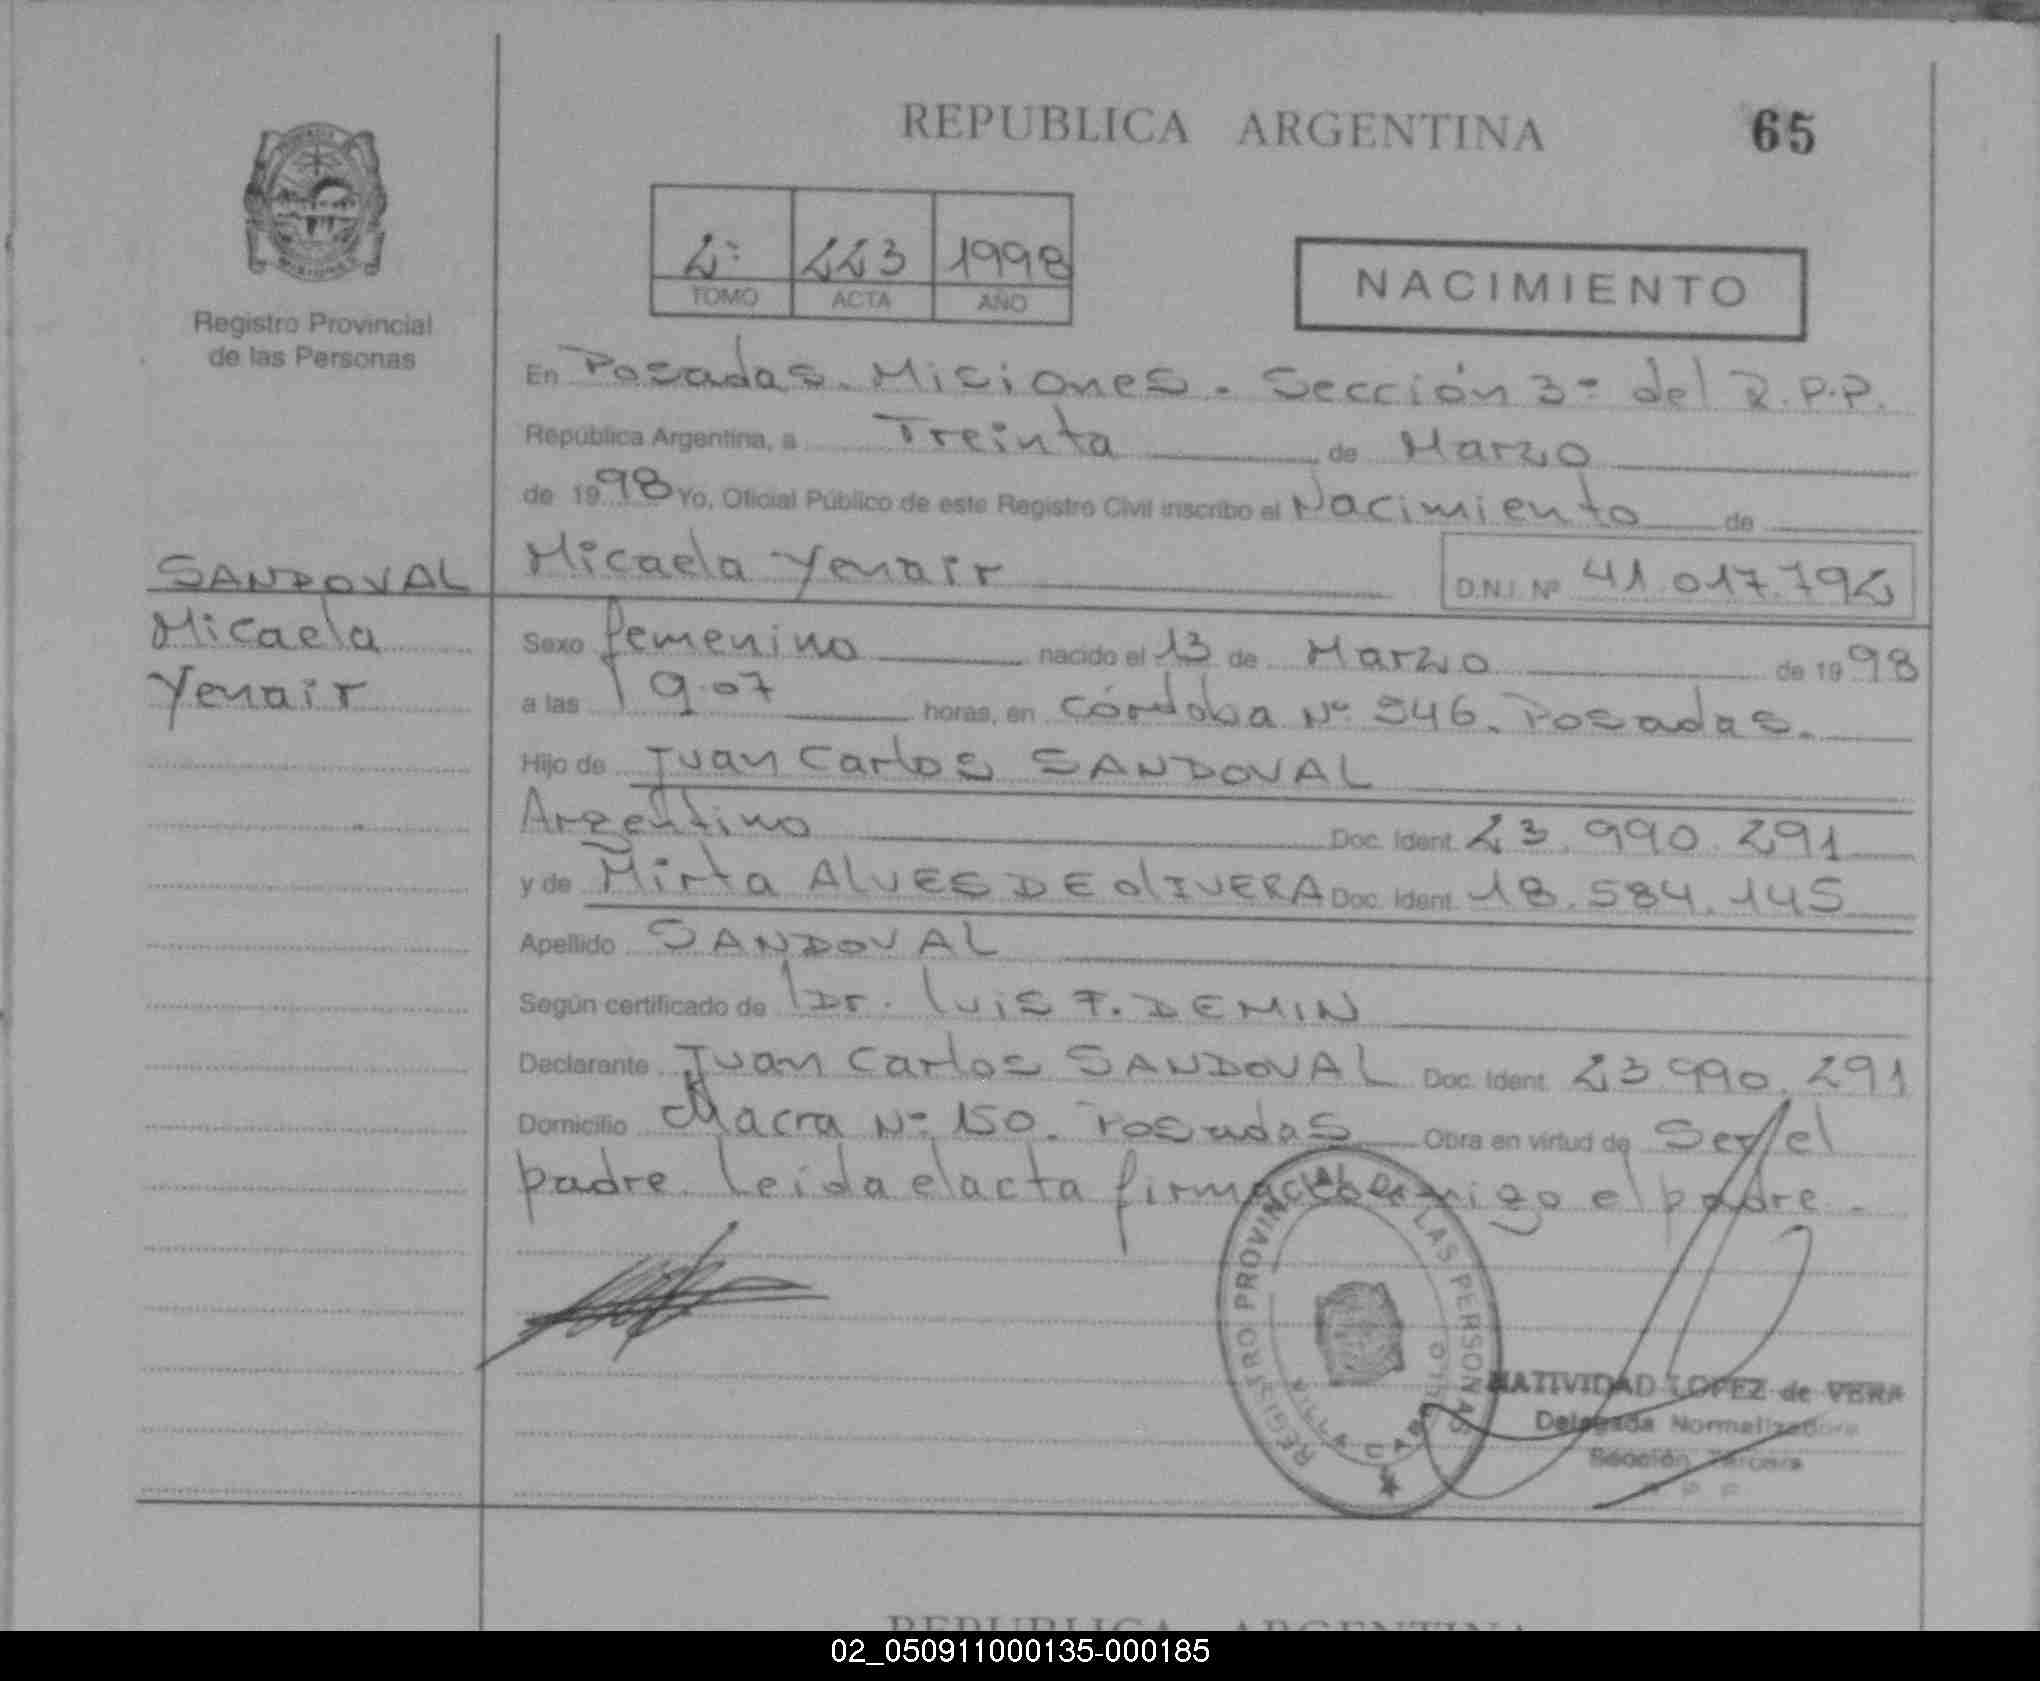 REPUBLICA ARGENTINA 65
2º 223 1998
TOMO ACTA AÑO
NACIMIENTO
Registro Provincial
de las Personas
En Posadas. Misiones. Sección 3º del R.P.P.
República Argentina, a Treinta de Marzo
de 1998 Yo, Oficial Público de este Registro Civil inscribo el Nacimiento de
SANDOVAL
Micaela
Yenair
Micaela Yenair D.N.I. Nº 41.017.792
Sexo femenino nacido el 13 de Marzo de 1998
a las 9.07 horas, en Córdoba Nº 346. Posadas.
Hijo de Juan Carlos SANDOVAL
Argentino Doc. Ident. 23.990.291
y de Mirta ALVES DE OLIVERA Doc. Ident. 18.584.145
Apellido SANDOVAL
Según certificado de Dr. Luis F. DEMIN
Declarante Juan Carlos SANDOVAL Doc. Ident. 23.990.291
Domicilio Chacra Nº 150. Posadas Obra en virtud de Ser el
padre. Leida el acta firma conmigo el padre.
REGISTRO PROVINCIAL DE LAS PERSONAS
NATIVIDAD LOPEZ de VERA
Delegada Normalizadora
Sección Tercera
R P P
REPUBLICA ARGENTINA
02_050911000135-000185